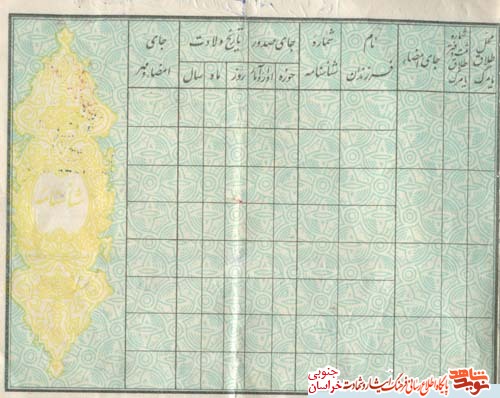 محل طلاق یا مرگ
شماره ثبت دفتر طلاق یا مرگ
جای امضاء
نام فرزندان
شماره شناسنامه
جای صدور
حوزه
تاریخ ولادت
روز
ماه
سال
جای امضاء و مهر
شناسنامه
نوید شاهد
پایگاه اطلاع رسانی فرهنگ ایثار و شهادت خراسان جنوبی